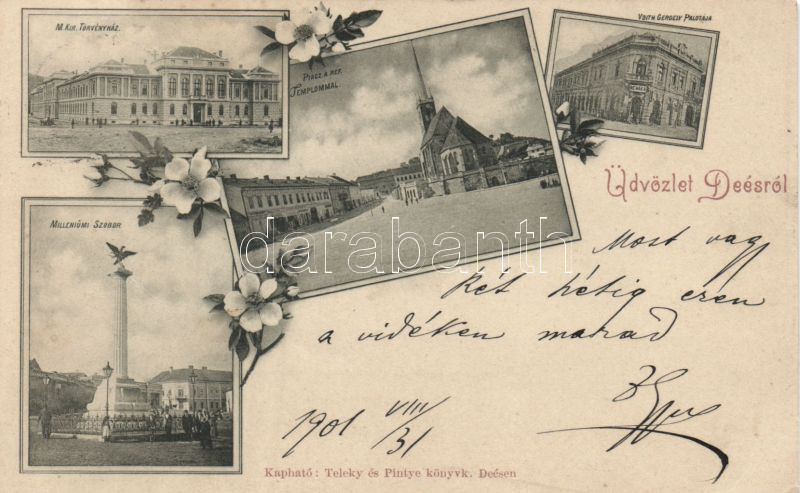 M. Kir. Törvényház.
Piacz a ref.
Templommal.
Voith Gergely Palotája
Üdvözlet Deésről
Milleniúmi Szobor
darabanth
Most vagy
két hétig ezen
a vidéken marad
1901 VIII/31
Kapható: Teleky és Pintye könyvk. Deésen